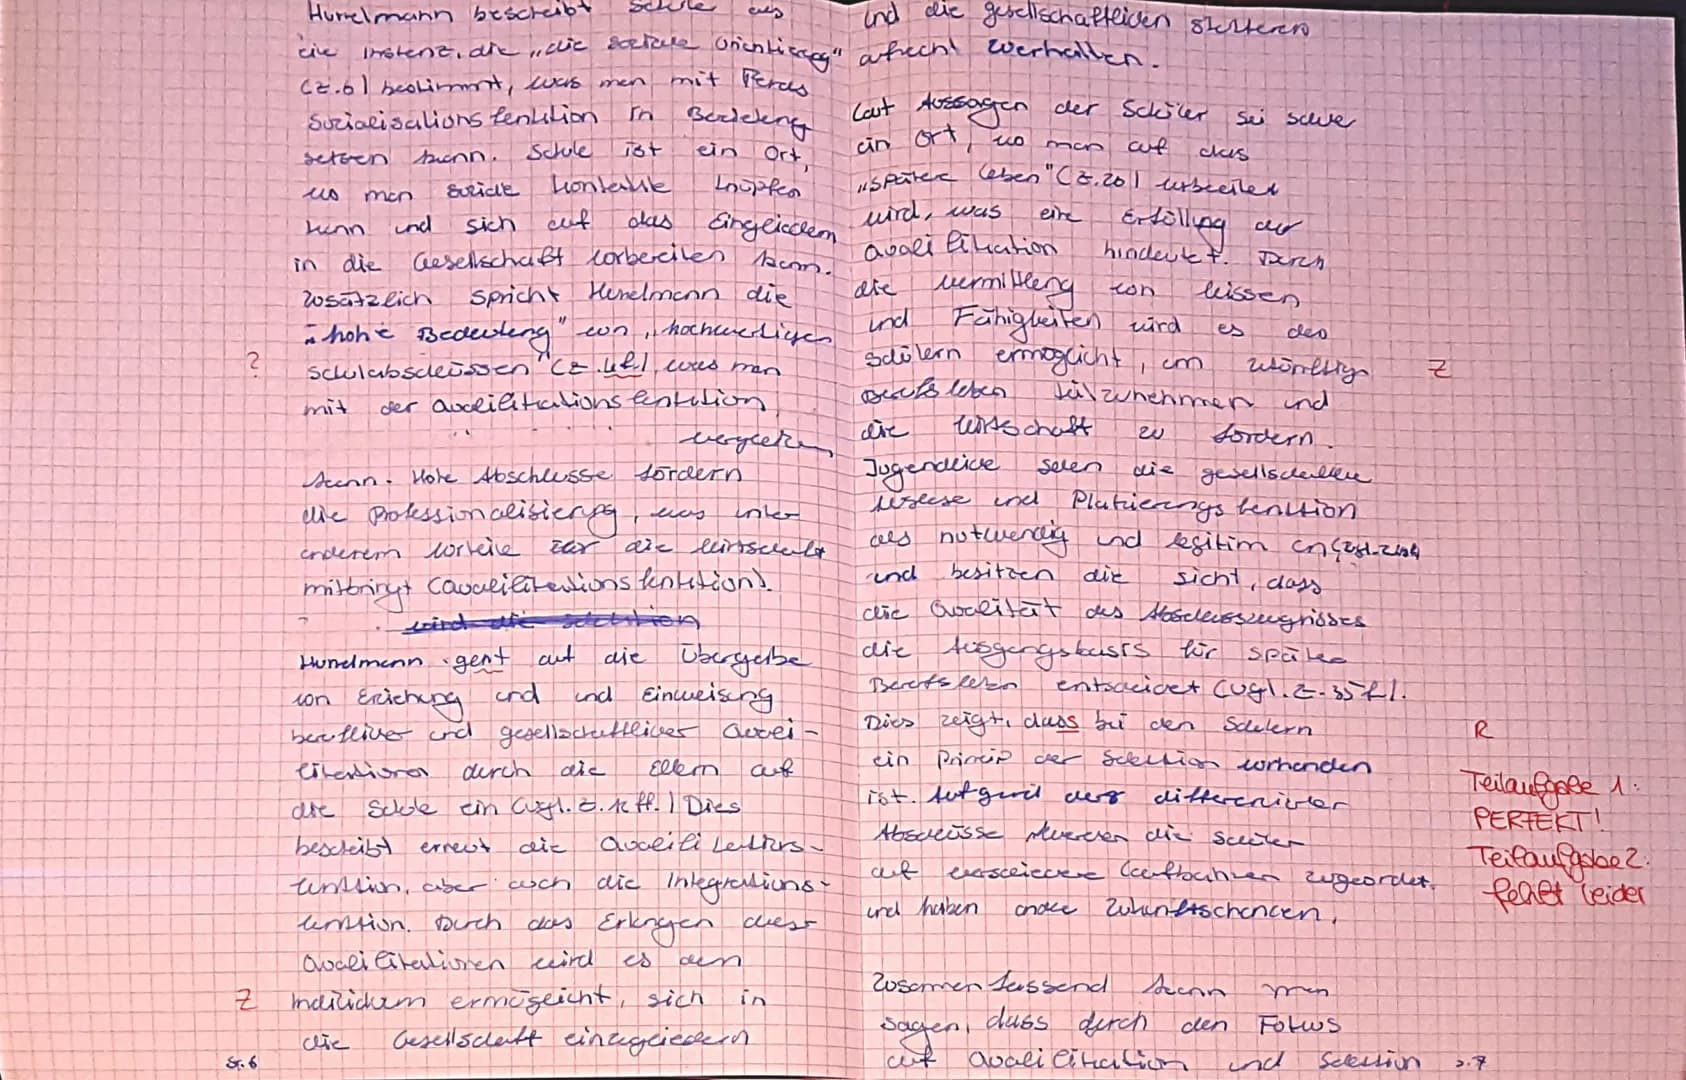 Hurrelmann bescheibt Schule als
die Instenz, die „die soziale Orientierung"
(Z.6) bestimmt, was men mit Fends
Sozialisationsfunktion in Beziehung
setzen kann. Schule ist ein Ort,
wo man soziale Kontakte knüpfen
kann und sich auf das Eingliedern
in die Gesellschaft vorbereiten kann.
Zusätzlich spricht Hurrelmann die
„hohe Bedeutung" von „hochwertigen
? Schulabschlüssen" (Z. 4f.) was man
mit der Qualifikationsfunktion
vergleichen
kann. Hohe Abschlüsse fördern
die Professionalisierung, was unter
anderem Vorteile für die Wirtschaft
mitbringt (Qualifikationsfunktion).
wird die Selektion
Hurrelmann geht auf die Übergabe
von Erziehung und und Einweisung
beruflicher und gesellschaftlicher Quali-
fikationen durch die Eltern auf
die Schule ein (vgl. Z. ff.) Dies
bescheibt erneut die Qualifikations-
funktion, aber auch die Integrations-
funktion. Durch das Erlangen dieser
Qualifikationen wird es den
Z Individuen ermöglicht, sich in
die Gesellschaft einzugliedern
S.6
und die gesellschaftlichen Strukturen
aufrecht zu erhalten.
Laut Aussagen der Schüler sei Schule
ein Ort, wo man auf das
„spätere Leben" (Z.20) vorbereitet
wird, was eine Erfüllung der
Qualifikation hindeutet. Durch
die Vermittlung von Wissen
und Fähigkeiten wird es den
Schülern ermöglicht, am zukünftigen Z
Berufsleben teilzunehmen und
die Wirtschaft zu fördern.
Jugendliche sehen die gesellschaftliche
Auslese und Platzierungsfunktion
als notwendig und legitim an
und besitzen die Sicht, dass
die Qualität des Abschlusszeugnisses
die Ausgangsbasis für späteres
Berufsleben entscheidet (vgl. Z. 35 f.).
Dies zeigt, dass bei den Schülern R
ein Prinzip der Selektion vorhanden
ist. Aufgrund der differenzierter
Abschlüsse werden die Schüler
auf verschiedene Laufbahnen zugeordnet
und haben andere Zukunftschancen.
Teilaufgabe 1:
PERFEKT!
Teilaufgabe 2:
fehlt leider
Zusammenfassend kann man
sagen, dass durch den Fokus
auf Qualifikation und Selektion S.7